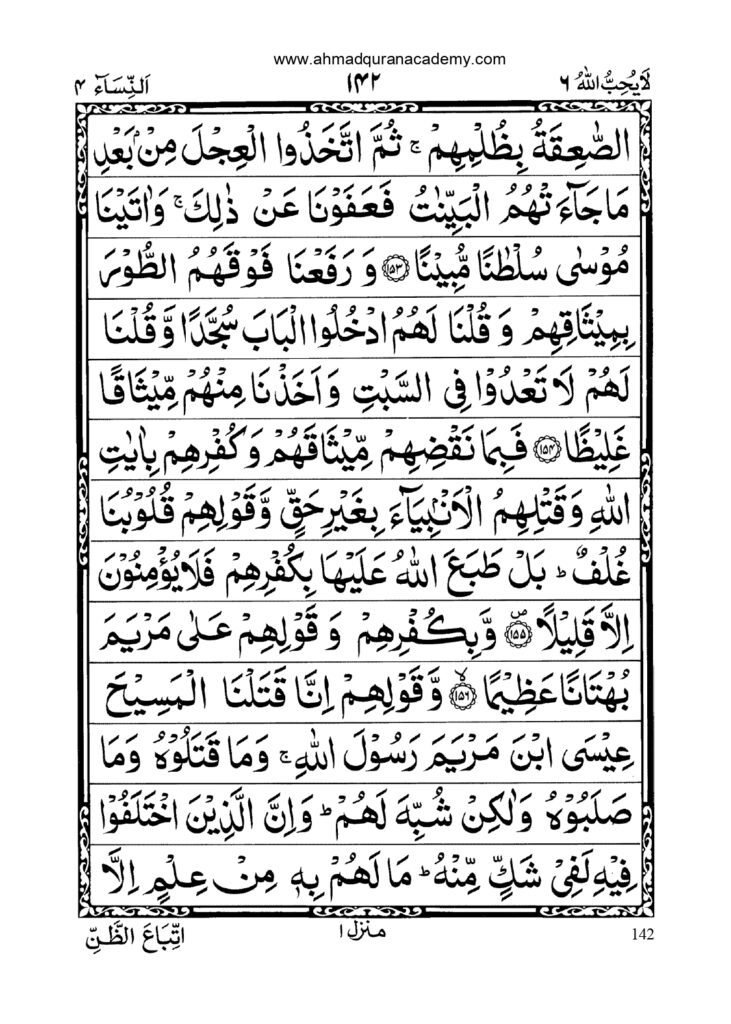 www.ahmadquranacademy.com
لَا يُحِبُّ اللّٰهُ ۶
۱۴۲
اَلنِّسَآء ۴
الصّٰعِقَةُ بِظُلْمِهِمْ ۚ ثُمَّ اتَّخَذُوا الْعِجْلَ مِنْۢ بَعْدِ
مَا جَآءَتْهُمُ الْبَيِّنٰتُ فَعَفَوْنَا عَنْ ذٰلِكَ ۚ وَاٰتَيْنَا
مُوْسٰى سُلْطٰنًا مُّبِيْنًا ﴿۱۵۳﴾ وَ رَفَعْنَا فَوْقَهُمُ الطُّوْرَ
بِمِيْثَاقِهِمْ وَ قُلْنَا لَهُمُ ادْخُلُوا الْبَابَ سُجَّدًا وَّ قُلْنَا
لَهُمْ لَا تَعْدُوْا فِى السَّبْتِ وَ اَخَذْنَا مِنْهُمْ مِّيْثَاقًا
غَلِيْظًا ﴿۱۵۴﴾ فَبِمَا نَقْضِهِمْ مِّيْثَاقَهُمْ وَ كُفْرِهِمْ بِاٰيٰتِ
اللّٰهِ وَ قَتْلِهِمُ الْاَنْۢبِيَآءَ بِغَيْرِ حَقٍّ وَّ قَوْلِهِمْ قُلُوْبُنَا
غُلْفٌ ؕ بَلْ طَبَعَ اللّٰهُ عَلَيْهَا بِكُفْرِهِمْ فَلَا يُؤْمِنُوْنَ
اِلَّا قَلِيْلًا ﴿۱۵۵﴾ۖ وَّ بِكُفْرِهِمْ وَ قَوْلِهِمْ عَلٰى مَرْيَمَ
بُهْتَانًا عَظِيْمًا ﴿۱۵۶﴾ۙ وَّ قَوْلِهِمْ اِنَّا قَتَلْنَا الْمَسِيْحَ
عِيْسَى ابْنَ مَرْيَمَ رَسُوْلَ اللّٰهِ ۚ وَمَا قَتَلُوْهُ وَمَا
صَلَبُوْهُ وَلٰكِنْ شُبِّهَ لَهُمْ ؕ وَاِنَّ الَّذِيْنَ اخْتَلَفُوْا
فِيْهِ لَفِىْ شَكٍّ مِّنْهُ ؕ مَا لَهُمْ بِهٖ مِنْ عِلْمٍ اِلَّا
142
منزل ۱
اتِّبَاعَ الظَّنِّ